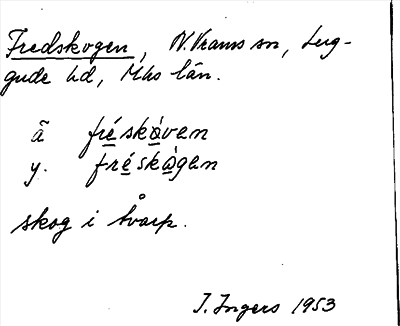 Fredskogen, N. Vrams sn, Lug-
gude hd, Mhs län.
ä fréskòven
y. fréskògen
skog i Åvarp.
I. Ingers 1953